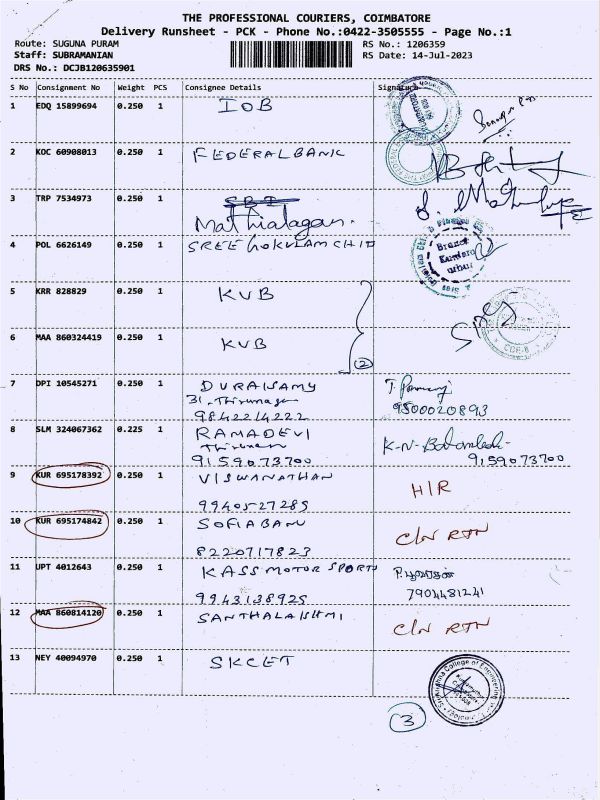 THE PROFESSIONAL COURIERS, COIMBATORE
Delivery Runsheet - PCK - Phone No.:0422-3505555 - Page No.:1
Route: SUGUNA PURAM
RS No.: 1206359
Staff: SUBRAMANIAN
RS Date: 14-Jul-2023
DRS No.: DCJB120635901
S No Consignment No Weight PCS Consignee Details Signature
1 EDQ 15899694 0.250 1 IOB
2 KOC 60908013 0.250 1 FEDERAL BANK
3 TRP 7534973 0.250 1 SBI
Mathialagan.
4 POL 6626149 0.250 1 SREE GOKULAM CHIT
Branch
5 KRR 828829 0.250 1 KVB
6 MAA 860324419 0.250 1 KVB
(2)
7 DPI 10545271 0.250 1 DURAISAMY
31,
9842214222 9500020893
8 SLM 324067362 0.225 1 RAMADEVI
9159073700 9159073700
9 KUR 695178392 0.250 1 VISWANATHAN H/R
9940527285
10 KUR 695174842 0.250 1 SOFIA BANU C/N RTN
8220717823
11 UPT 4012643 0.250 1 KASS MOTOR SPORTS
9943138925 7904481241
12 MAA 860814120 0.250 1 SANTHALAKSHMI C/N RTN
13 NEY 40094970 0.250 1 SKCET
College of Engineering
(3)